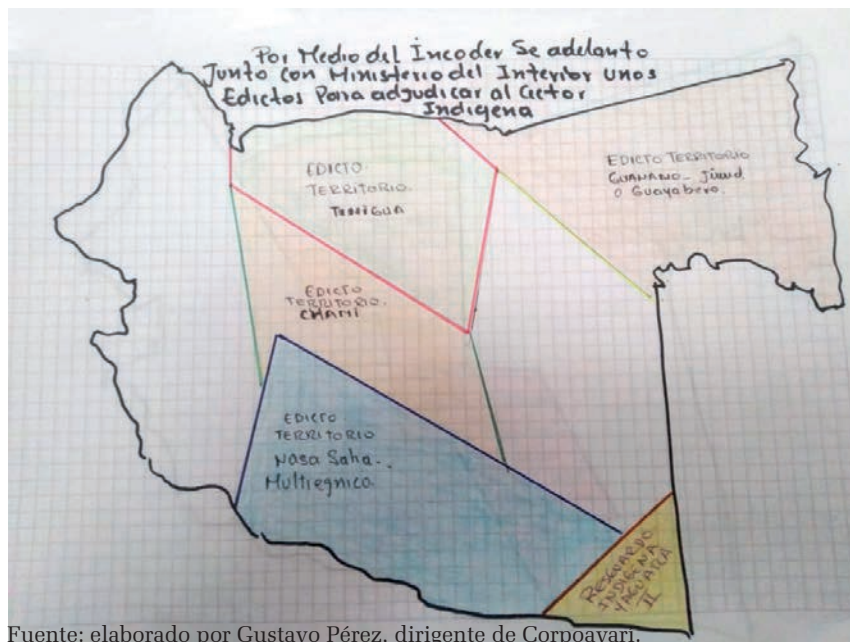 Por Medio del Incoder Se adelanto
Junto con Ministerio del Interior unos
Edictos Para adjudicar al Cector
Indigena
EDICTO
TERRITORIO.
TINIGUA
EDICTO TERRITORIO
GUANANO - Jiwd.
O Guayabero.
EDICTO
TERRITORIO.
CHAMI
EDICTO
TERRITORIO
Nasa Saha-.
Multiegnica
RESGUARDO
INDIGENA
YAGUARA
II
Fuente: elaborado por Gustavo Pérez, dirigente de Corpoayarí.